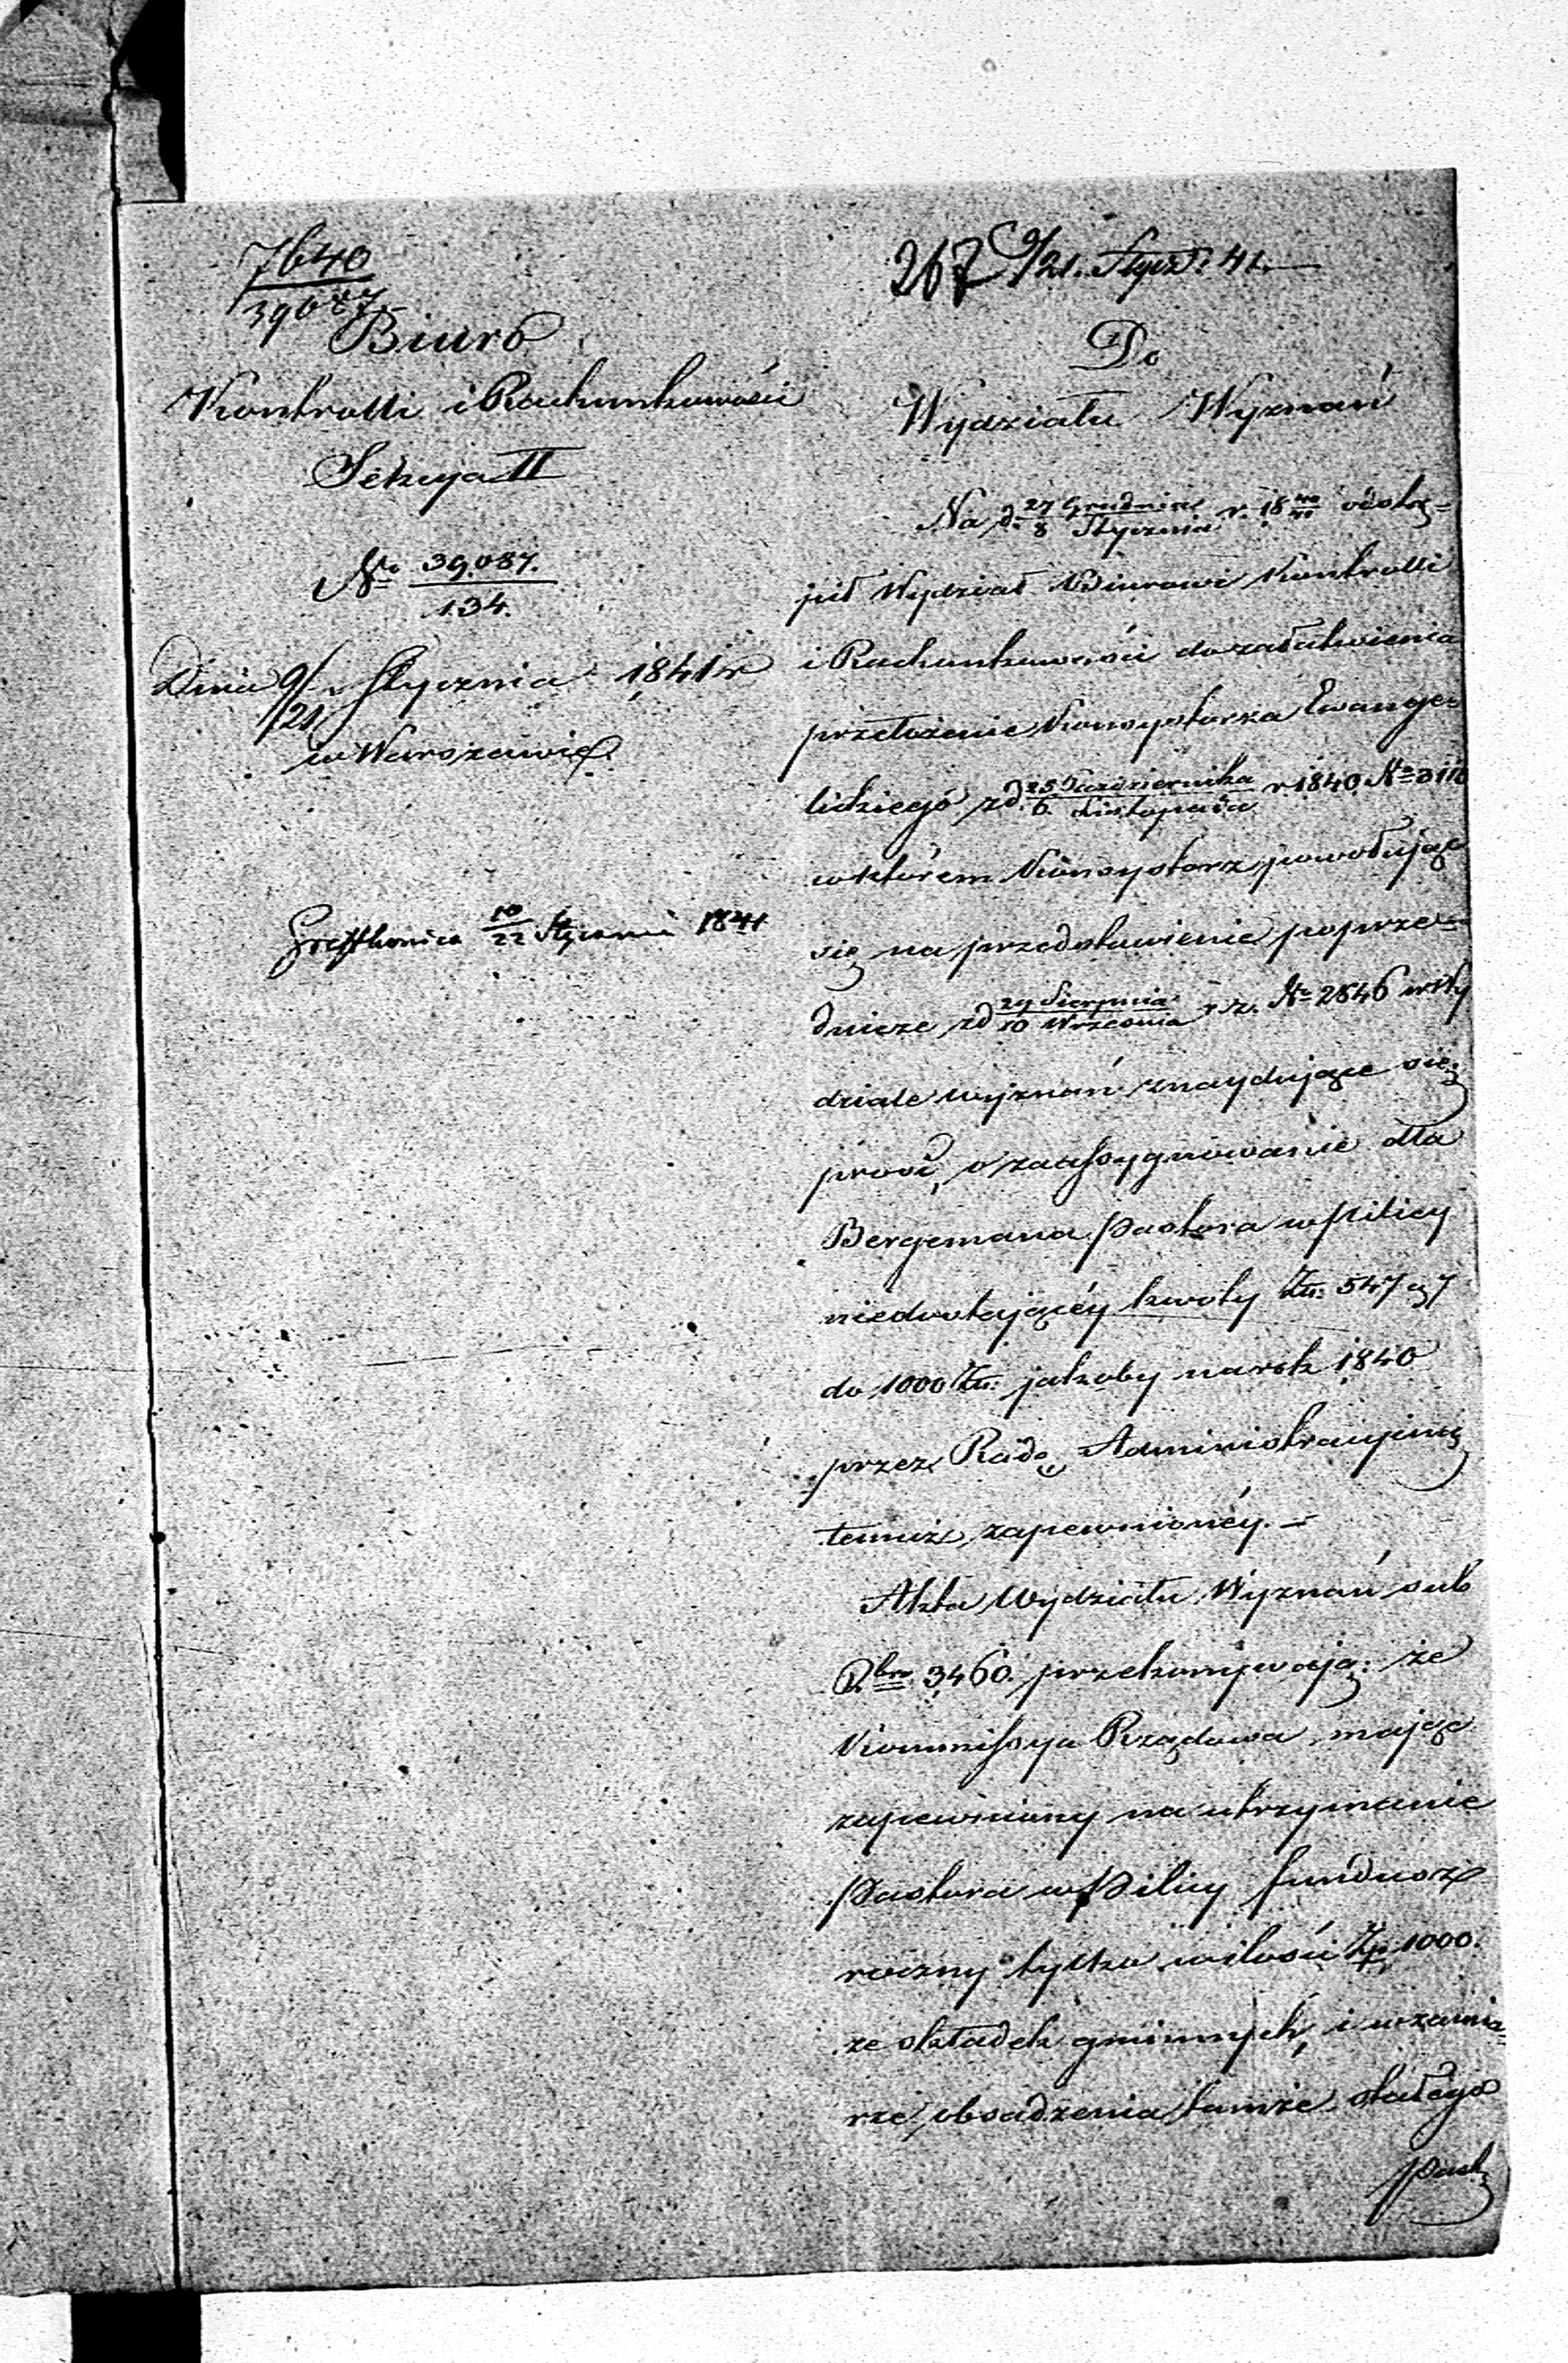 7640
39087
Biuro
Kontrolli i Rachunkowości
Sekcya II
No 39.087.
134.
Dnia 9/21 Stycznia 1841 r
w Warszawie.
10/22 Stycznia 1841
267 9/21. Stycz: 41.
Do
Wydziału Wyznań
Na d. 27 Grudnia/8 Stycznia r. 1840/41 odstą=
pił Wydział Biurowi Kontrolli
i Rachunkowości do załatwienia
przełożenie Konsystorza Ewange=
lickiego z d. 25 Października/6 Listopada r 1840 No
w którem Konsystorz powołując
się na przedstawienie poprze=
dnicze z d 29 Sierpnia/10 Września r. z. No 2846 w Wy
dziale wyznań znaydujące się,
prosi, o zaassygnowanie dla
Bergemana Pastora w Pilicy
niedostającéy kwoty Złr: 547 g 7
do 1000 Złr: jakoby na rok 1840
przez Radę Administracyiną
temuż zapewnionéy. —
Akta Wydziału Wyznań sub
3460. przekonywają: że
Kommissya Rządowa, mając
zapewniony na utrzymanie
Pastora w Pilicy fundusz
roczny tylko w ilości Zp 1000.
ze składek gminnych, i w zamia=
rze obsadzenia tamże stałego
Past